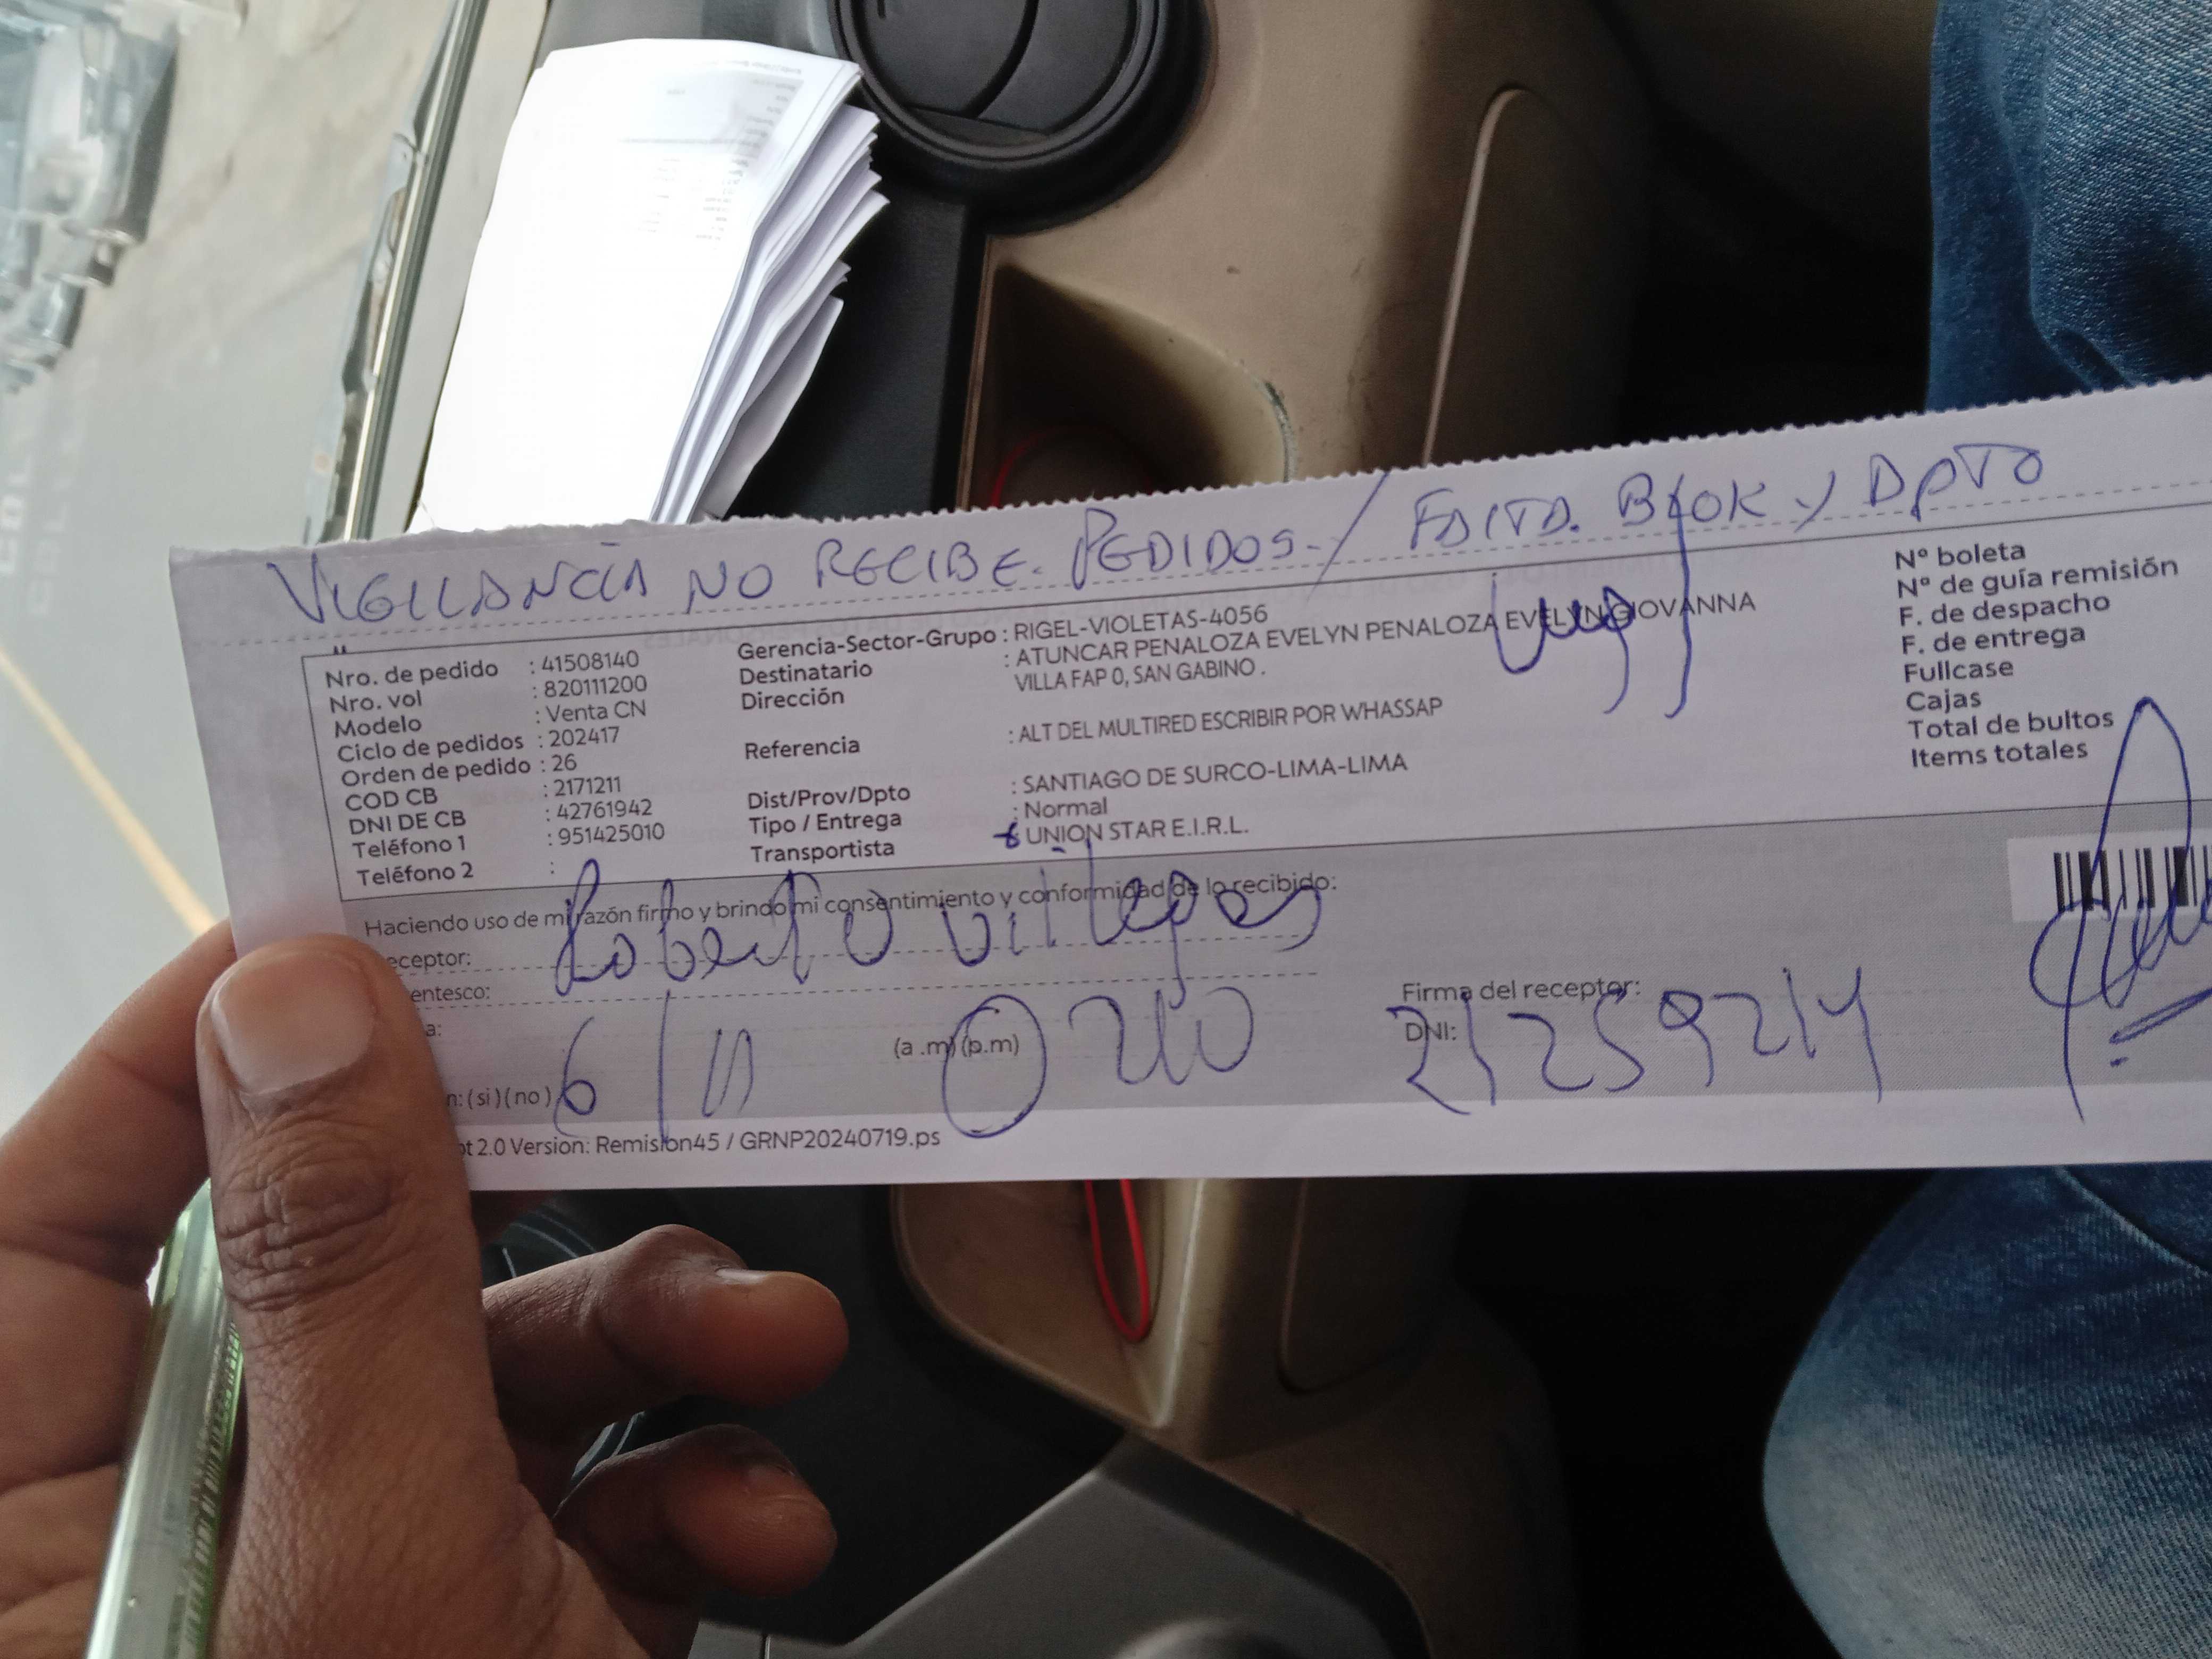 VIGILLANCIA NO RECIBE. PEDIDOS. / FALTA. BLOK Y DPTO
Nro. de pedido : 41508140
Nro. vol : 820111200
Modelo : Venta CN
Ciclo de pedidos : 202417
Orden de pedido : 26
COD CB : 2171211
DNI DE CB : 42761942
Teléfono 1 : 951425010
Teléfono 2 :
Gerencia-Sector-Grupo : RIGEL-VIOLETAS-4056
Destinatario : ATUNCAR PENALOZA EVELYN PENALOZA EVELYN GIOVANNA
Dirección VILLA FAP 0, SAN GABINO .
Referencia : ALT DEL MULTIRED ESCRIBIR POR WHASSAP
Dist/Prov/Dpto : SANTIAGO DE SURCO-LIMA-LIMA
Tipo / Entrega : Normal
Transportista : UNION STAR E.I.R.L.
Nº boleta
Nº de guía remisión
F. de despacho
F. de entrega
Fullcase
Cajas
Total de bultos
Items totales
Haciendo uso de mi razón firmo y brindo mi consentimiento y conformidad de lo recibido:
eceptor: Roberto Villegas
entesco:
a: 6/11 (a .m) (p.m)
Firma del receptor:
DNI:
n: (si) (no)
pt 2.0 Version: Remision45 / GRNP20240719.ps